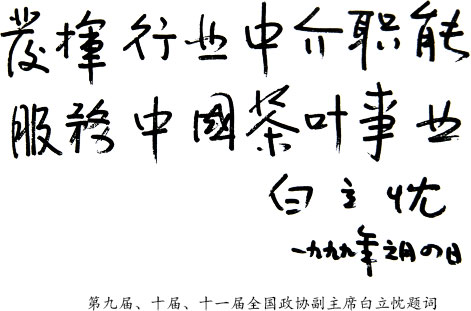 發揮行业中介职能
服務中國茶叶事业
白立忱
一九九九年元月四日
第九届、十届、十一届全国政协副主席白立忱题词